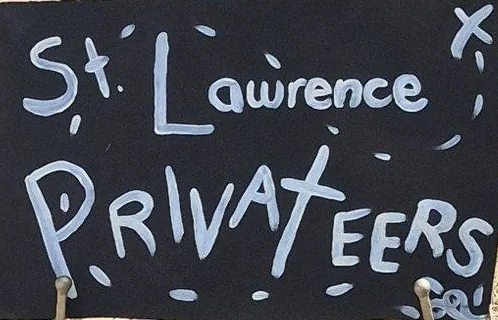 St. Lawrence
PRIVATEERS